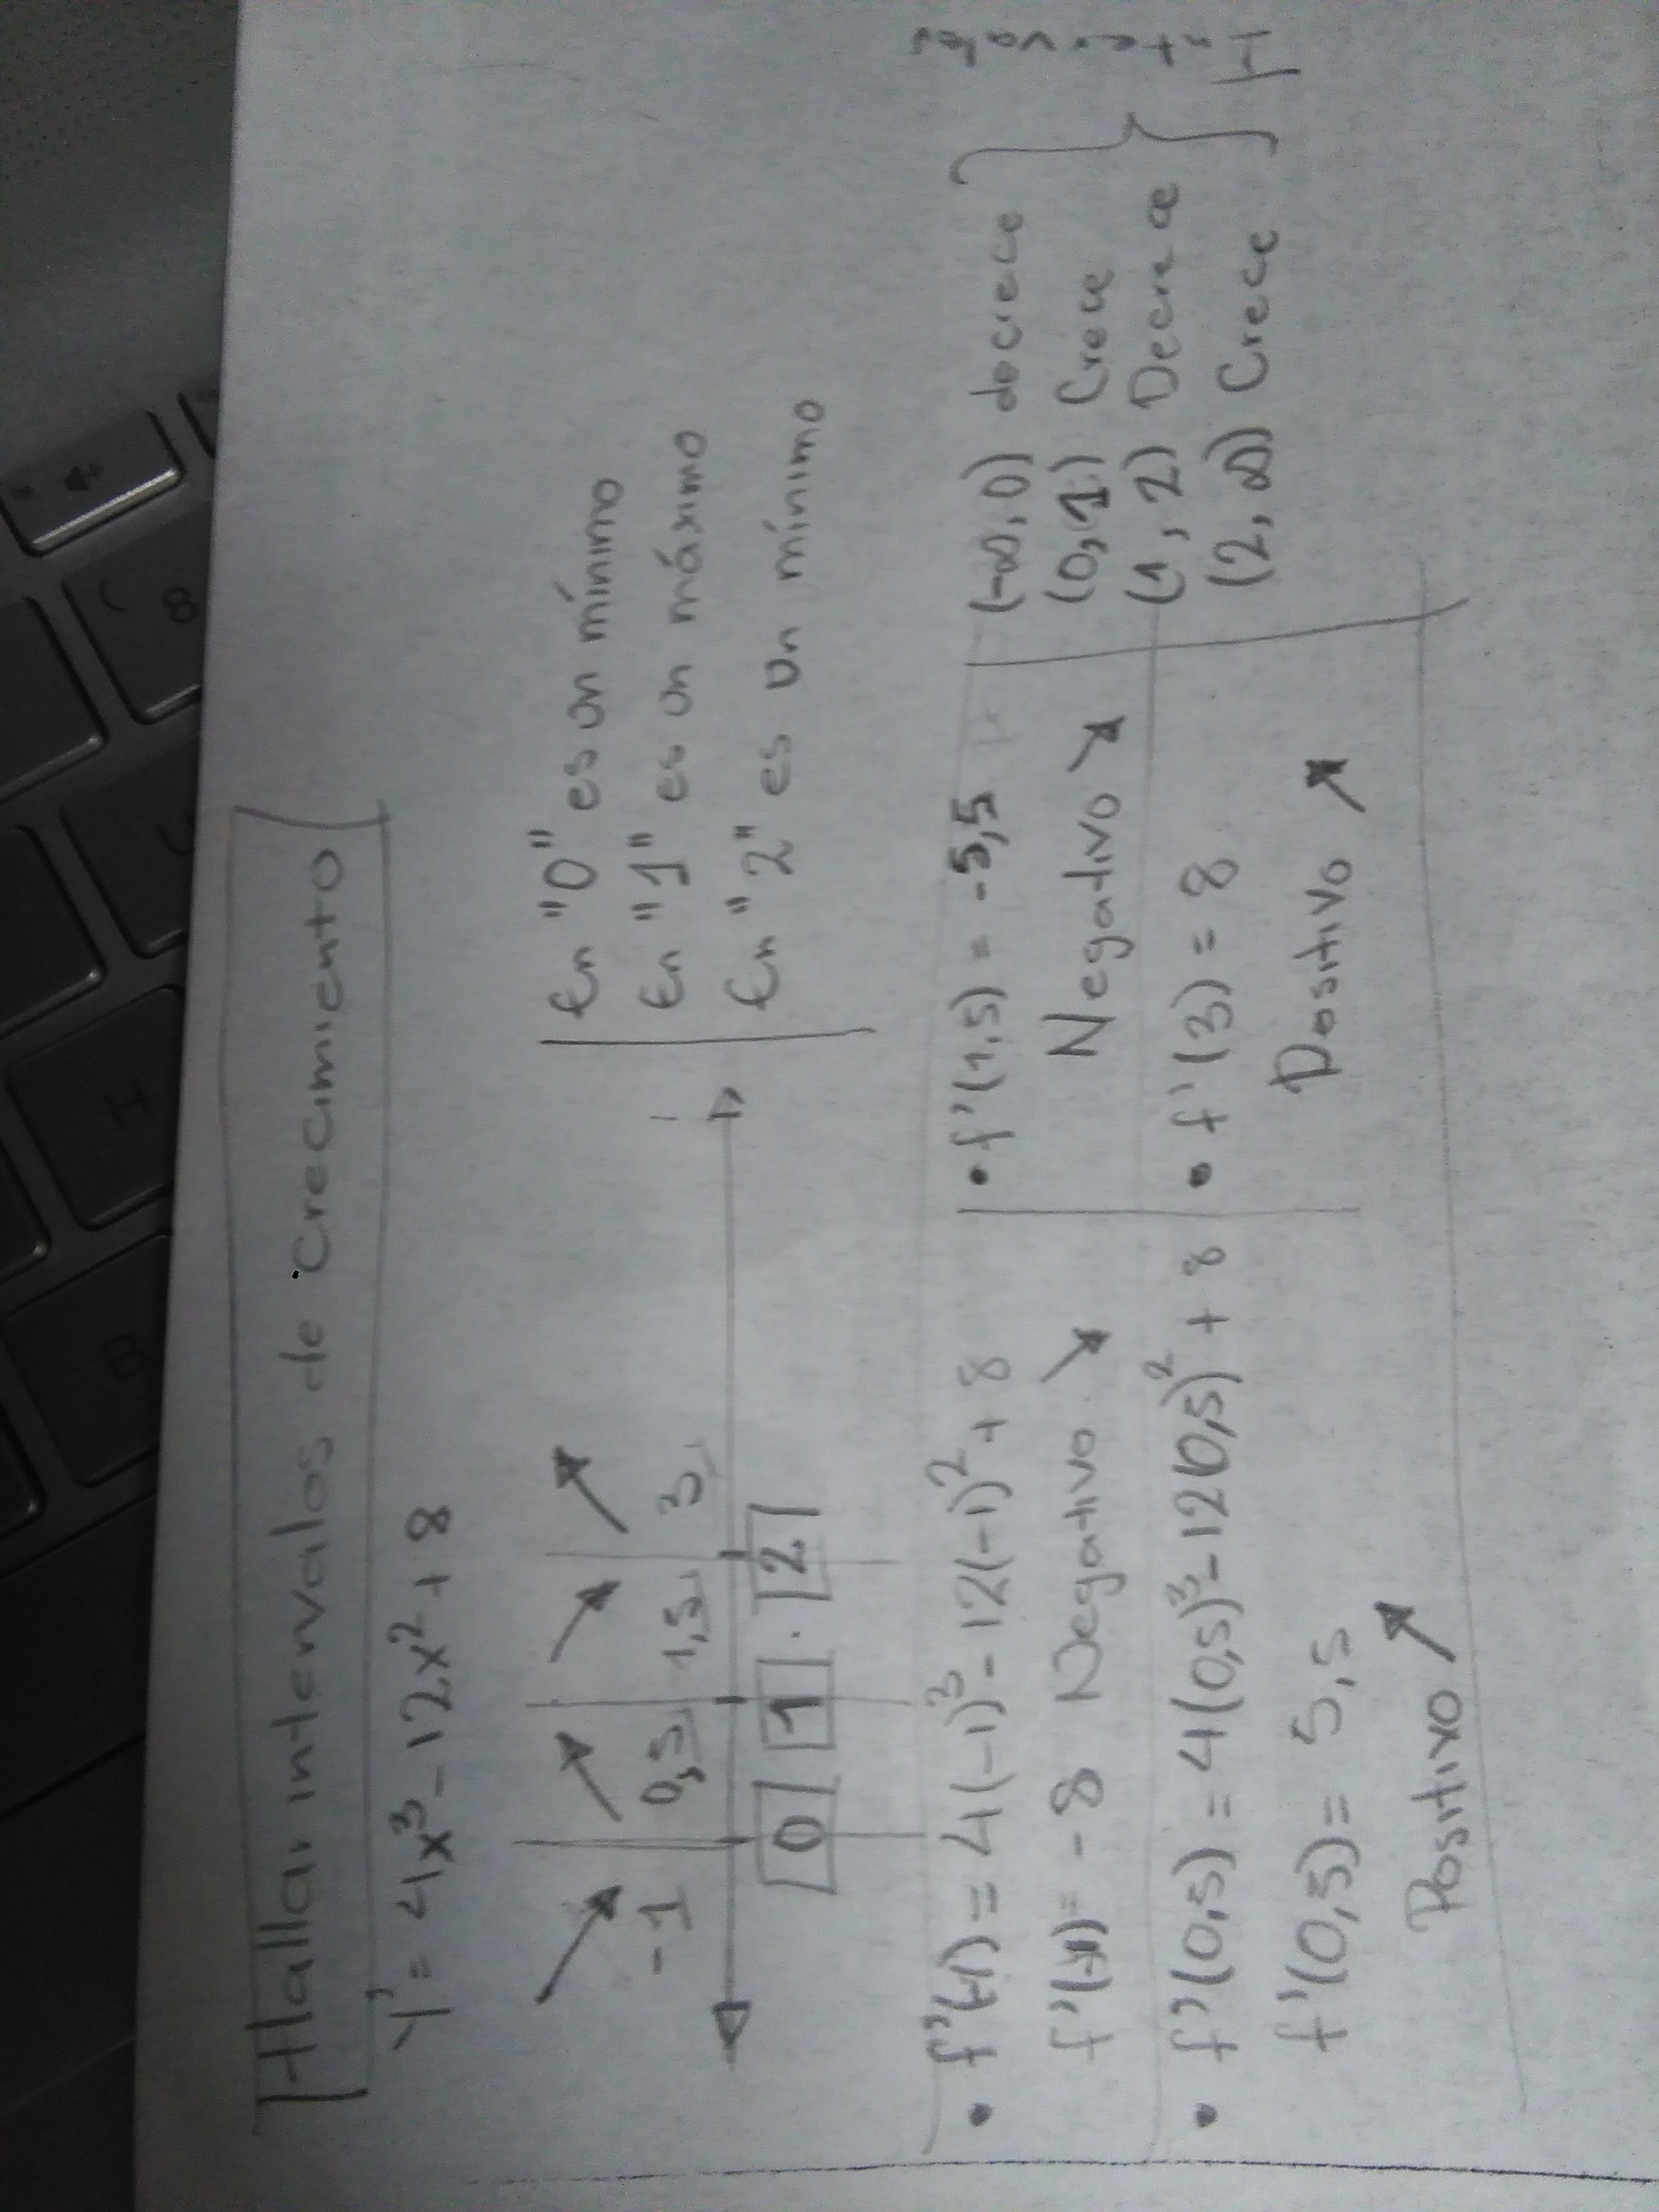 Hallar intervalos de Crecimiento
y' = 4x³ - 12x² + 8
-1 0,5 1,5 3
0 1 2
En "0" es un mínimo
En "1" es un máximo
En "2" es un mínimo
• f'(-1) = 4(-1)³ - 12(-1)² + 8
f'(-1) = -8 Negativo ↘
• f'(0,5) = 4(0,5)³ - 12(0,5)² + 8
f'(0,5) = 5,5
Positivo ↗
• f'(1,5) = -5,5
Negativo ↘
• f'(3) = 8
Positivo ↗
(-∞, 0) decrece
(0, 1) Crece
(1, 2) Decrece
(2, ∞) Crece
Intervalos
H
B
U
( 8